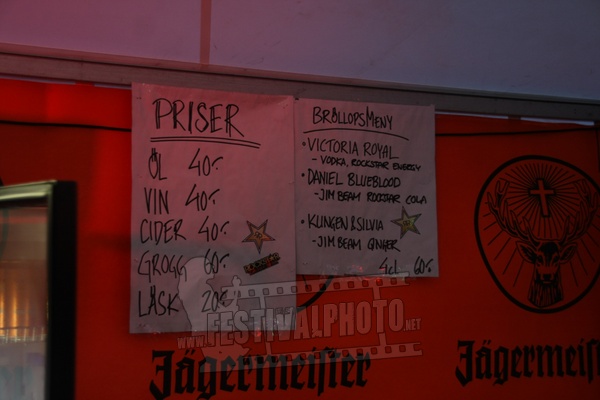 PRISER
ÖL 40:-
VIN 40:-
CIDER 40:-
GROGG 60:-
LÄSK 20:-
BRÖLLOPSMENY
• VICTORIA ROYAL
- VODKA, ROCKSTAR ENERGY
• DANIEL BLUEBLOOD
- JIM BEAM ROCKSTAR COLA
• KUNGEN & SILVIA
- JIM BEAM GINGER
4cl 60:-
WWW.FESTIVALPHOTO.NET
Jägermeister
Jägermeist